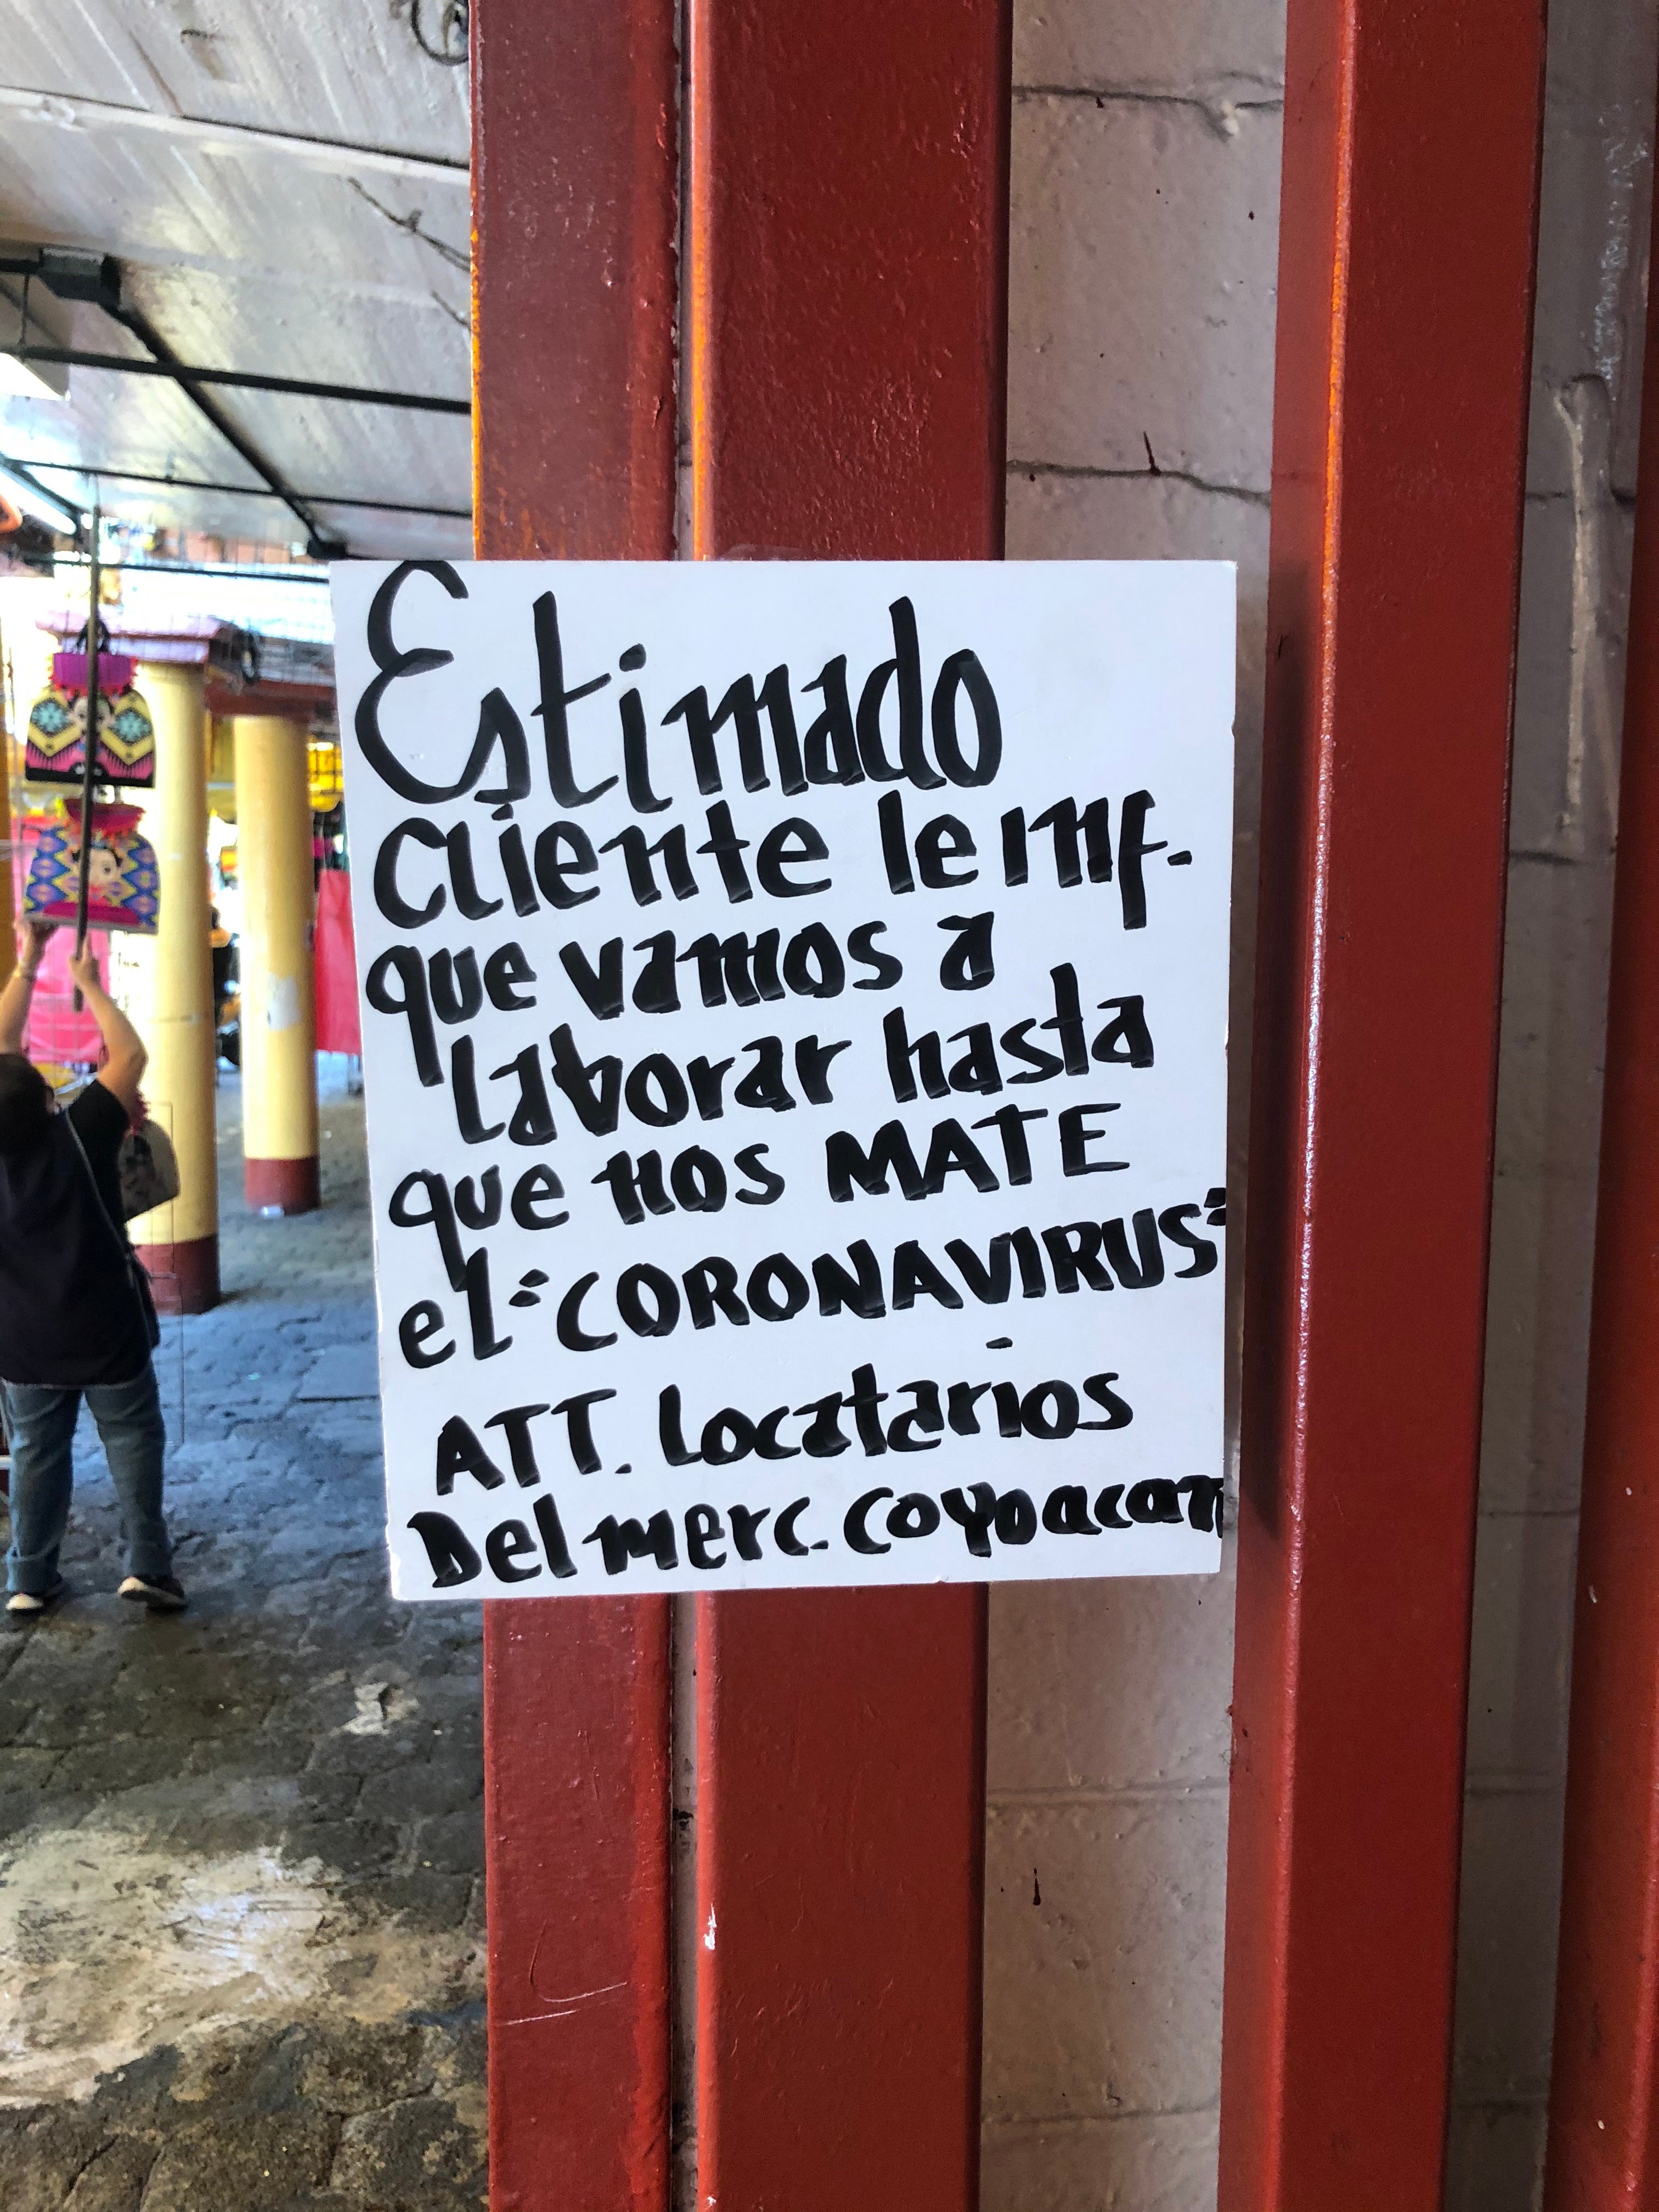 Estimado
cliente le inf.
que vamos a
laborar hasta
que nos MATE
el "CORONAVIRUS"
ATT. Locatarios
Del merc. coyoacan